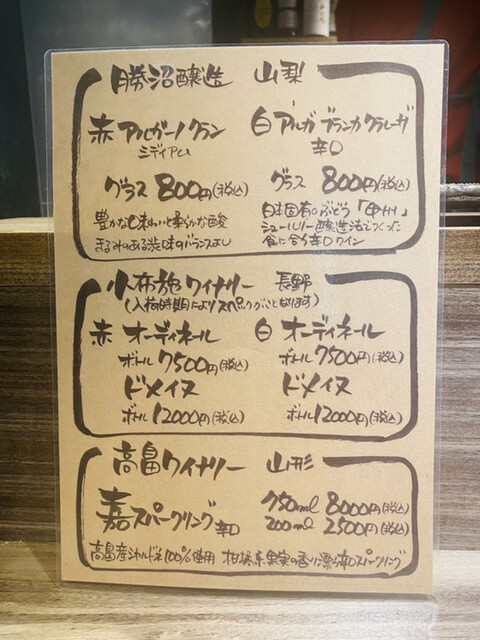 勝沼醸造 山梨
赤 アルガーノ クラン 白 アルガ ブランカ クラレーザ
ミディアム 辛口
グラス 800円(税込) グラス 800円(税込)
豊かな味わいと柔らかな酸
まるみのある渋味のバランスよし
日本固有のぶどう「甲州」
シュールリー醸造法でつくった
食に合う辛口ワイン
小布施ワイナリー 長野
(入荷時期によりスペックがことなります)
赤 オーディネール 白 オーディネール
ボトル 7500円(税込) ボトル 7500円(税込)
ドメイヌ ドメイヌ
ボトル 12000円(税込) ボトル 12000円(税込)
高畠ワイナリー 山形
嘉スパークリング 辛口 750ml 8000円(税込)
200ml 2500円(税込)
高畠産シャルドネ100%使用 柑橘系果実の香り漂う辛口スパークリング